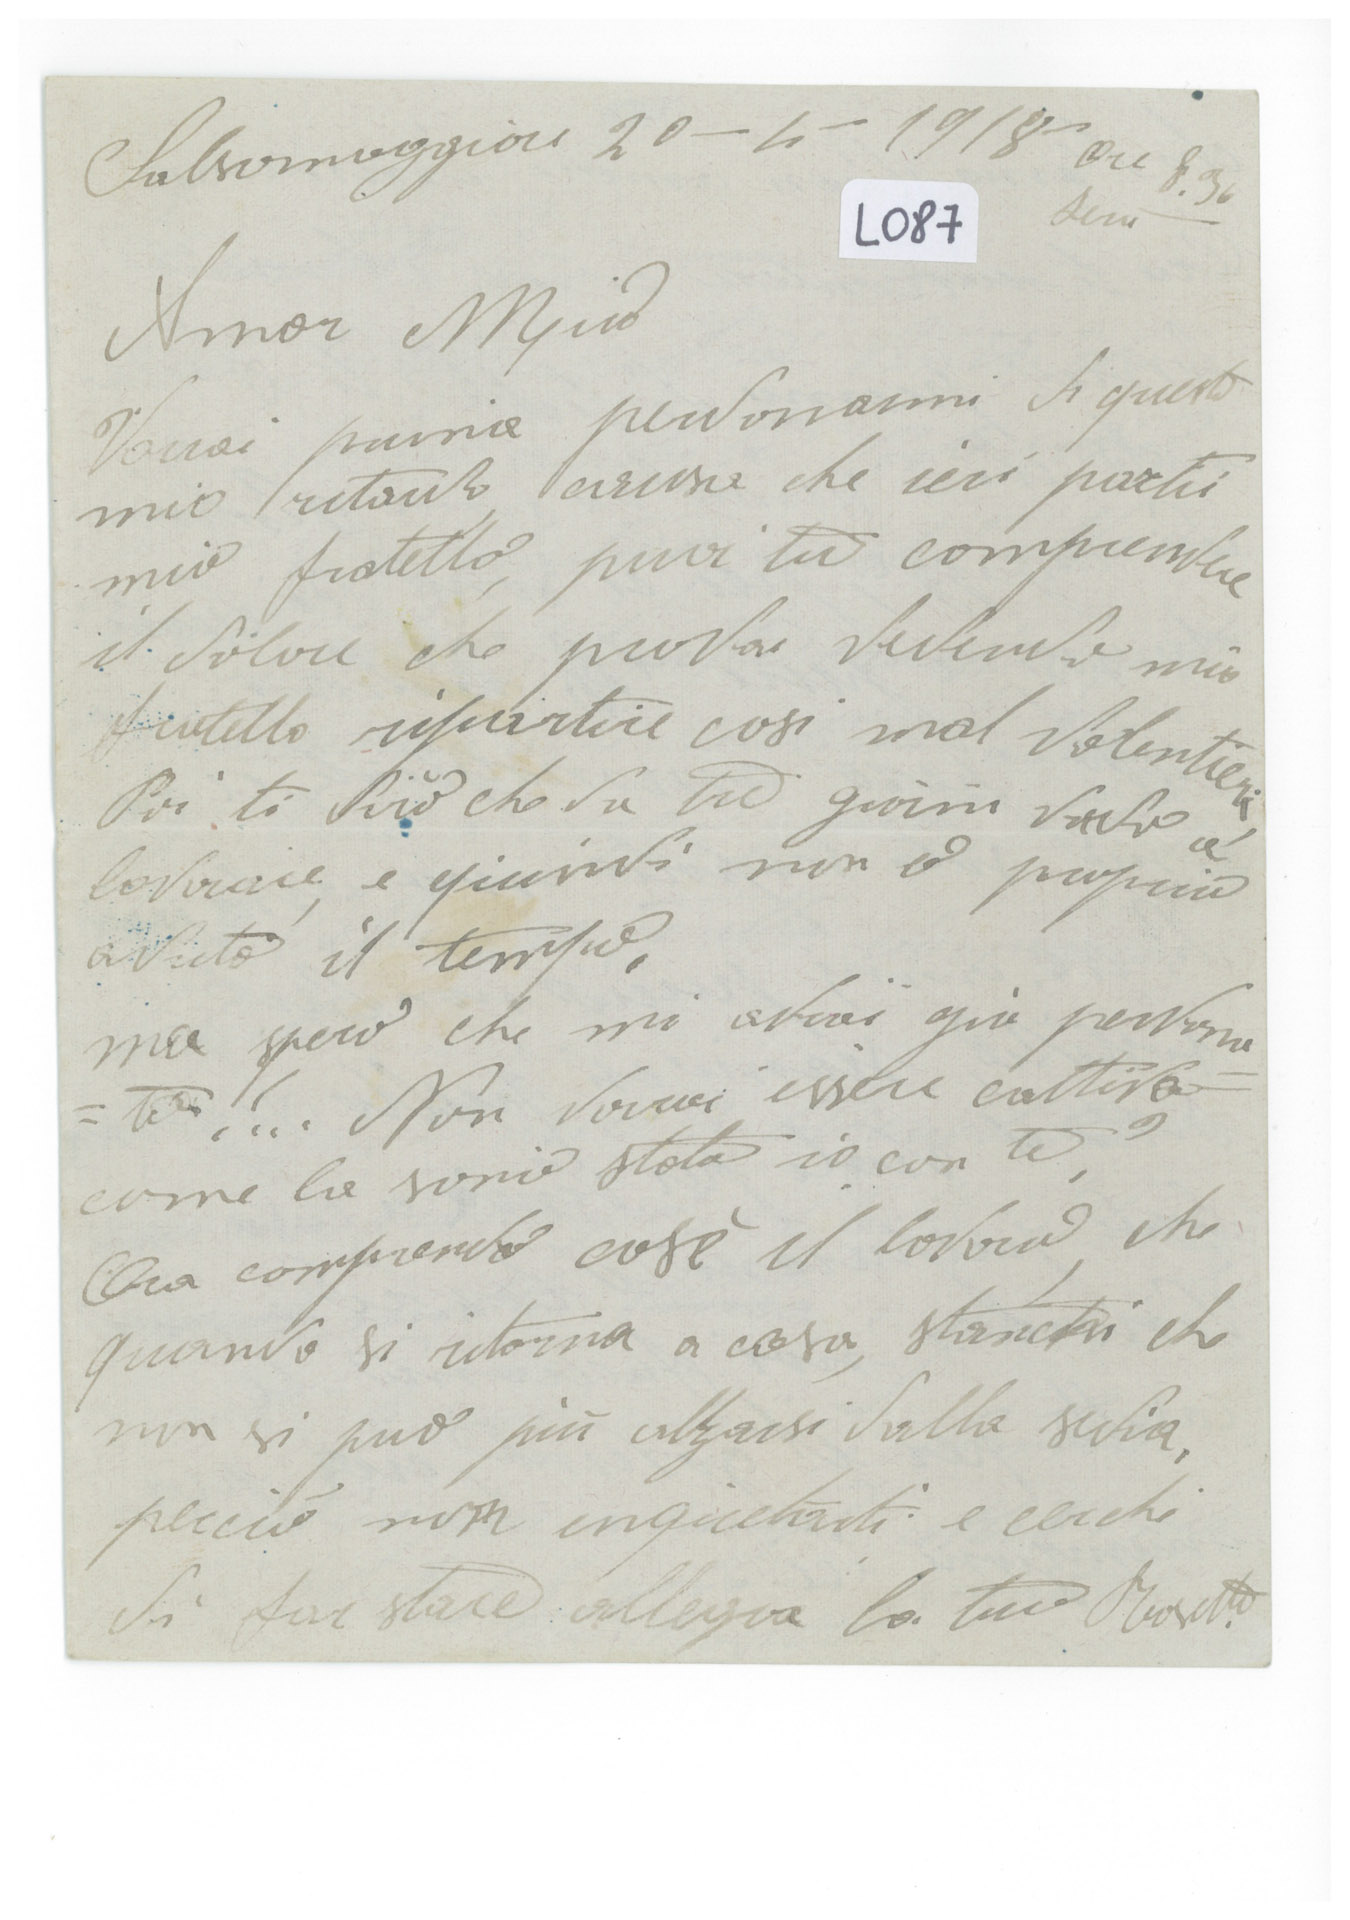 Salsomaggiore 20-4-1918 ore 8.30
sera
L087
Amor Mio
Vorrai prima perdonarmi di questo
mio ritardo, causa che ieri partì
mio fratello, puoi tu comprendere
il dolore che provai vedendo mio
fratello ripartire cosi mal volentieri
Poi ti dirò che da tre giorni vado a
lavorare, e quindi non ò proprio
avuto il tempo.
ma spero che mi avrai già perdona
=to.!... Non vorrai essere cattivo
come la sono stata io con te?
Ora comprendo cosè il lavoro, che
quando si ritorna a casa, stanchi che
non si può più alzarsi dalla sedia,
perciò non inquietarti e cerchi
di far stare allegra la tua Rosetta.